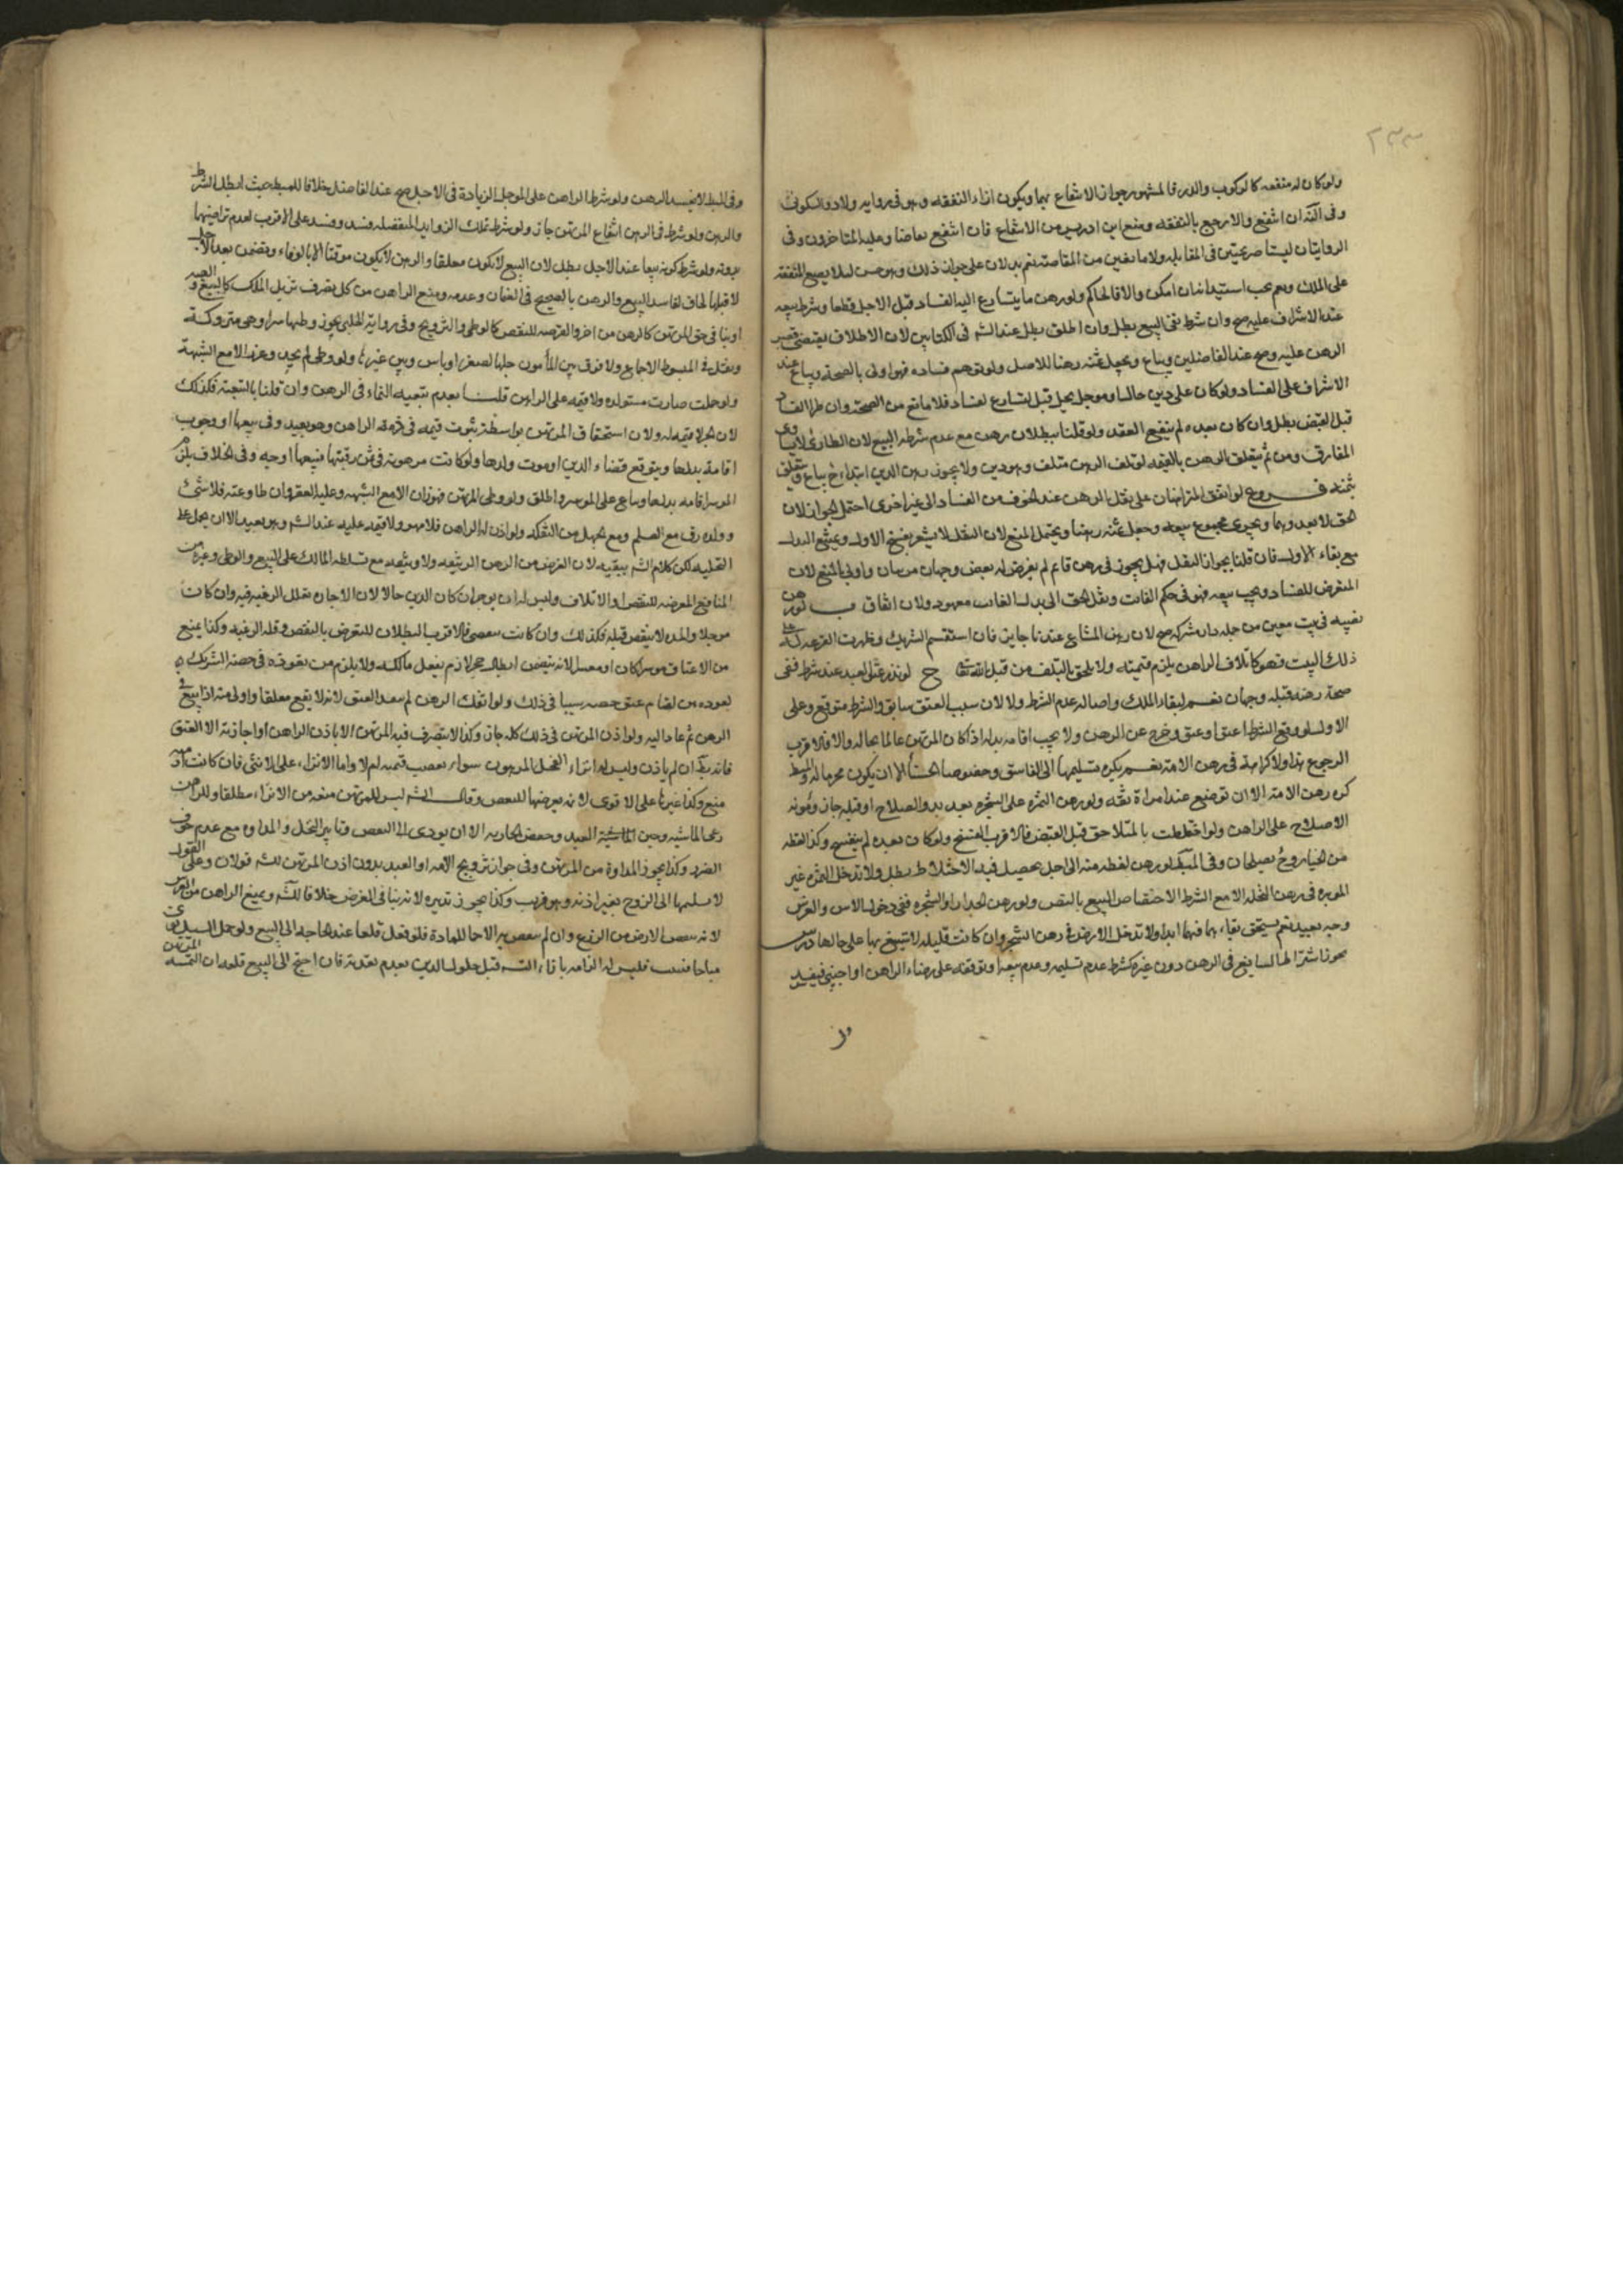 ٢٣٣
ولو كان له منفعه كالركوب والدر فالمشهور جواز الانتفاع بهما ويكون بازاء النفقه وهو في رواية ابي ولاد والسكوني
وفي النهاية ان انتفع والا رجع بالنفقه ومنع ابن ادريس من الانتفاع فان انتفع تقاصا وعليه المتاخرون وفي
الروايتان ليستا صريحتين في المقابله ولا مانعتين من المقاصة نعم يدلان على جواز ذلك وهو حسن لئلا يضيع المنفعه
على المالك نعم يجب استيذانه ان امكن والا فالحاكم ولو رهن ما يتسارع اليه الفساد قبل الاجل قطعا وشرط بيعه
عند الاشراف عليه صح وان شرط نفي البيع بطل وان اطلق بطل عند الشيخ في الكتابين لان الاطلاق يقتضي قصر
الرهن عليه وصح عند الفاضلين ويباع ويجعل ثمنه رهنا للاصل ولو توهم فساده فهو اولى بالصحة ويباع عند
الاشراف على الفساد ولو كان على دين حال او موجل يحل قبل تسارع الفساد فلا مانع من الصحة وان طرا الفساد
قبل القبض بطل وان كان بعده لم ينفسخ العقد ولو قلنا ببطلان رهن مع عدم شرطه البيع لان الطاري لا يساوي
المقارن ومن ثم يتعلق الرهن بالقيمه لو تلف الرهن متلف وهو دين ولا يجوز رهن الدين ابتداء ح يباع ويتعلق
بثمنه فروع لو اتفق المتراهنان على نقل الرهن عند الخوف من الفساد الى غير اخرى احتمل الجواز لان
الحق لا يعدوهما ويجري مجموع بيعه وجعل ثمنه رهنا ويحتمل المنع لان النقل لا يشعر بفسخ الاول ويمتنع البدل
مع بقاء الاول فان قلنا بجواز النقل فهل يجوز في رهن قائم لم يعرض له نقص وجهان مرتبان واولى بالمنع لان
المتعرض للفساد ويجب بيعه فهو في حكم الفائت ونقل الحق الى بدل الفائت معهود ولان اتفاق ب لو رهن
نصيبه في بيت معين من جمله دار مشتركه صح لان رهن المشاع عندنا جايز فان استقسم الشريك وظهرت القرعه له على
ذلك البيت فهو كاتلاف الراهن يلزم قيمته ولا يلحق بالتلف من قبل الله تعالى ح لو نذر عتق العبد عند شرط ففي
صحة رهنه قبله وجهان نعم لبقاء الملك واصالة عدم الشرط ولا لان سبب العتق سابق والشرط متوقع وعلى
الاول لو وقع الشرط اعتق او عتق وخرج عن الرهن ولا يجب اقامه بدله اذا كان المرتهن عالما بحاله والا فالاقرب
الرجوع بهذا ولا كراهة في رهن الامة نعم يكره تسليمها الى الفاسق وخصوصا الحسنا الا ان يكون محرما لها وفي المبسوط
كره رهن الامة الا ان توضع عند امراة ثقه ولو رهن الثمره على الشجره بعد بدو الصلاح او قبله جاز ومؤنه
الاصلاح على الراهن ولو اختلطت بالمتلاحق قبل القبض فالاقرب الفسخ ولو كان بعده لم ينفسخ وكذا لقطه
من الخيار وح يصطلحان وفي المبسوط لو رهن لقطه منه الى اجل يحصل فيه الاختلاط بطل ولا تدخل الثمره غير
الموبره في رهن النخله الا مع الشرط لاختصاص البيع بالنص ولو رهن الجدار او الشجره ففي دخول الاس والغرس
وجه بعيد نعم يستحق بقاءهما فيهما ابدا ولا تدخل الارض في رهن الشجر وان كانت قليله لا ينتفع بها على حالها درس
يجوز اشتراط السايغ في الرهن دون غيره كشرط عدم تسليمه وعدم بيعه او توقفه على رضاء الراهن او اجنبي فيفسد
وفي
وفي المبسوط لا يفسد الرهن ولو شرط الراهن على الموجل الزيادة في الاجل صح عند الفاضل خلافا للمبسوط حيث ابطل الشرط
والرهن ولو شرط في الرهن انتفاع المرتهن جاز ولو شرط تملك الزوايد المنفصله فسد وفسد على الاقرب لعدم تراضيهما
بدونه ولو شرط كونه مبيعا عند الاجل بطل لان البيع لا يكون معلقا والرهن لا يكون موقتا الا بالوفاء ويضمن بعد الاجل
لا قبله الحاقا لفاسد البيع والرهن بالصحيح في الضمان وعدمه ومنع الراهن من كل تصرف يزيل الملك كالبيع والهبه
او ينافي حق المرتهن كالرهن من اخر والتعرضه للنقص كالوطي والتزويج وفي رواية الحلبي يجوز وطيها سرا وهي متروكة
ونقل في المبسوط الاجماع ولا فرق بين المأمون حبلها لصغر او ياس وبين غيرها ولو وطي لم يحد وعزر الا مع الشبهة
ولو حبلت صارت مستولده ولا قيمه على الراهن قلنا بعدم تبعيه النماء في الرهن وان قلنا بالتبعية فكذلك
لان الحر لا قيمه له ولان استحقاق المرتهن بواسطة ثبوت قيمه في ذمة الراهن وهو بعيد وفي بيعها او وجوب
اقامة بدلها ويتوقع قضاء الدين او موت ولدها ولو كانت مرهونة في ثمن رقبتها فبيعها اوجه وفي الخلاف يلزم
الموسر اقامه بدلها وتباع على المعسر واطلق ولو وطي المرتهن فهو زان الا مع الشبهه وعليه العقر وان طاوعته فلا شي
وولده رق مع العلم ومع الجهل من التفكه ولو اذن له الراهن فلا مهر ولا قيمه عليه عند الشيخ وهو بعيد الا ان يحمل على
التحليل لكن كلام الشيخ ينفيه لان الغرض من الرهن الوثيقه ولا وثيقه مع تسلط المالك على البيع والوطي وغيره من
المنافع المعرضه للنقص او الاتلاف وليس له ان يوجر ان كان الدين حالا لان الاجاره تقلل الرغبه فيه وان كان
موجلا والمده لا تنقص قبله فكذلك وان كانت تنقضي فالاقرب البطلان للتعرض بالنقص وقله الرغبه وكذا يمنع
من الاعتاق موسرا كان او معسرا لانه يتضمن ابطال حجر لازم بفعل مالكه ولا يلزم من نفوذه في حصة الشريك
نفوذه هنا لقيام عتق حصته سببا في ذلك ولو افتك الرهن لم ينفذ العتق لانه لا يقع معلقا واولى منه اذا بيع في
الرهن ثم عاد اليه ولو اذن المرتهن في ذلك كله جاز وكذا لا يتصرف فيه المرتهن الا باذن الراهن او اجازته الا العتق
فانه يبطل ان لم ياذن وليس له انزاء الفحل المرهون سواء نقصت قيمته ام لا واما الانزاء على الانثى فان كانت امة
منع وكذا غيرها على الاقوى لانه يعرضها للنقص وقال الشيخ ليس للمرتهن منعه من الانزاء مطلقا وللراهن
رعي الماشيه وختن العبد وخفض الجاريه الا ان يودي الى النقص وتابير النخل والمداواه مع عدم خوف
الضرر وكذا يجوز المداواة من المرتهن وفي جواز تزويج الامه او العبد بدون اذن المرتهن للشيخ قولان وعلى القول
لا يسلمها الى الزوج بغير اذنه وهو قريب وكذا يجوز تدبيره لانه لا ينافي الغرض خلافا للشيخ ويمنع الراهن من الغرس
لانه ينقص الارض من الزرع وان لم ينقص به الارض حسما للمادة فلو فعل قلعا عند الحاجه الى البيع ولو حمل السيل نوى
مباحا فنبت فليس له الزامه بازالته قبل حلول الدين لعدم تعديه فان احتيج الى البيع قلعه ان التمسه المرتهن